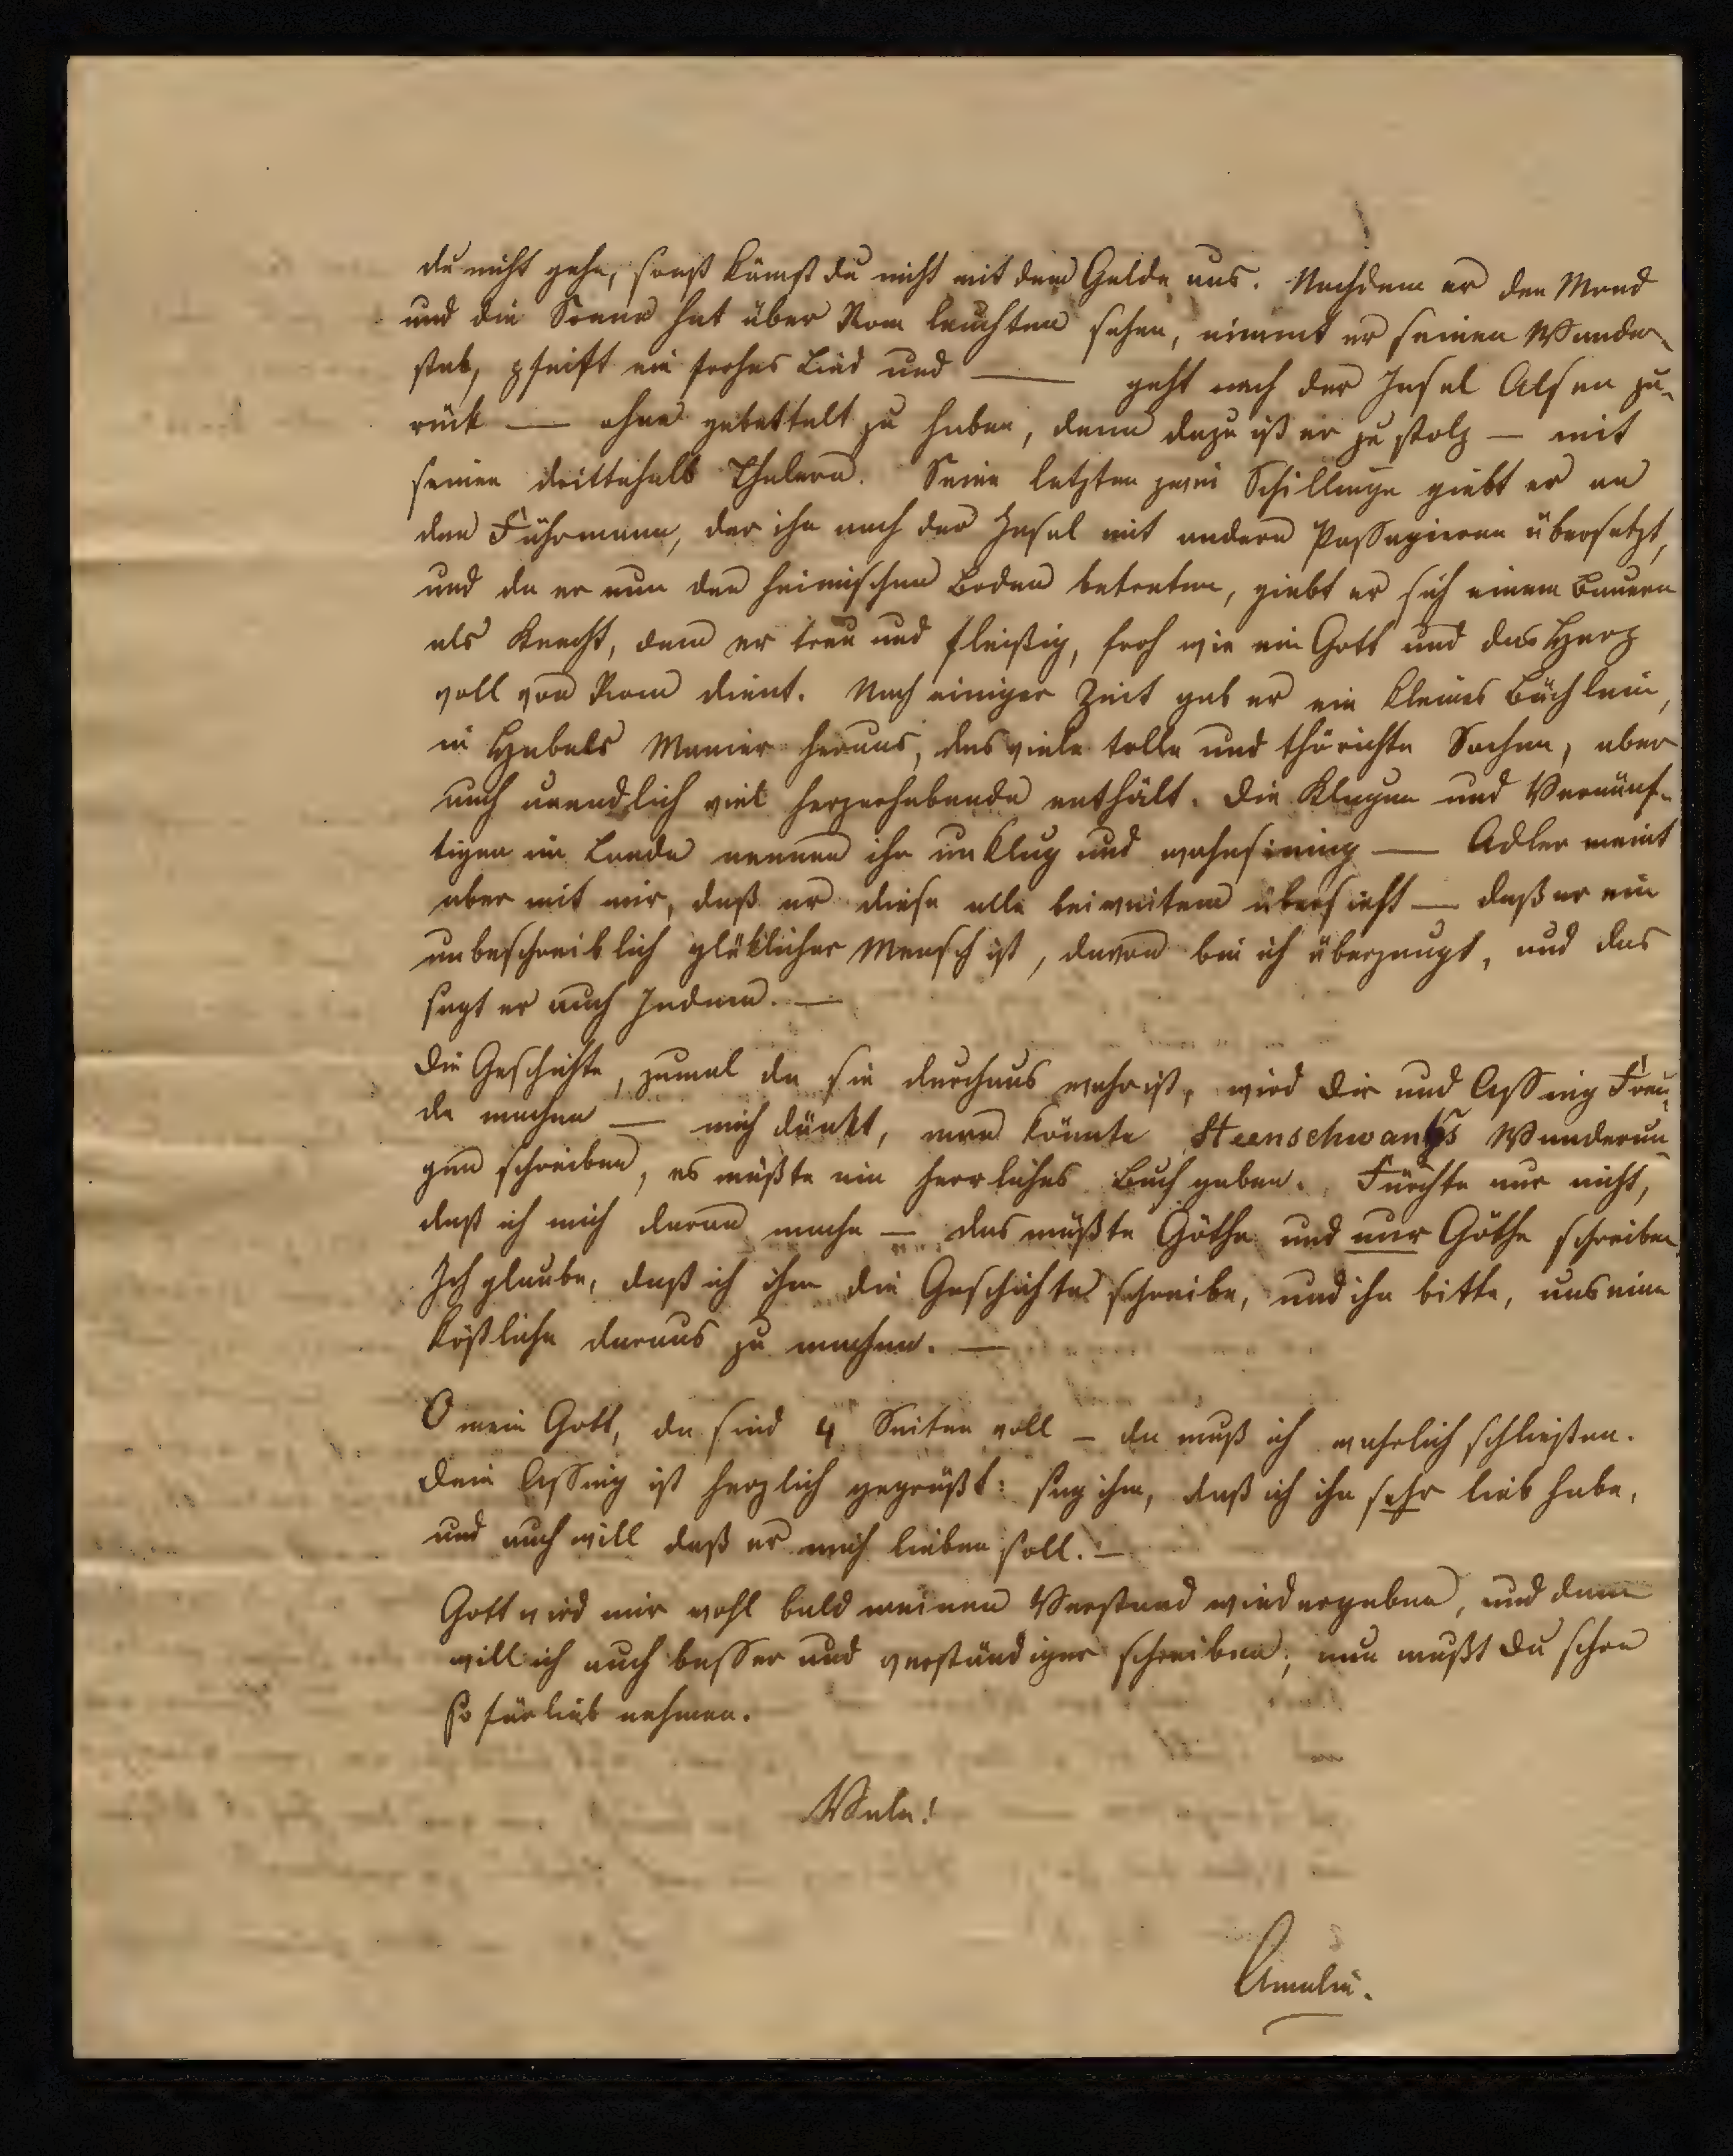 du nicht gehn, sonst kämst du nicht mit dem Gelde aus. Nachdem er den Mond
und die Sonne hat über Rom leuchten sehen, nimmt er seinen Wander-
stab, pfeift ein frohes Lied und — geht nach der Insel Alsen zu-
rück — ohne gebettelt zu haben, denn dazu ist er zu stolz — mit
seinen drittehalb Thalern. Seine letzten zwei Schillinge giebt er an
den Fährmann, der ihn nach der Insel mit andern Passagieren übersetzt,
und da er nun den heimischen Boden betreten, giebt er sich einem Bauern
als Knecht, dem er treu und fleißig, froh wie ein Gott und das Herz
voll von Rom dient. Nach einiger Zeit gab er ein kleines Büchlein,
in Hebels Manier heraus, das viele tolle und thörichte Sachen, aber
auch unendlich viel herzerhebendes enthält. Die Klugen und Vernünf-
tigen im Lande nennen ihn unklug und wahnsinnig — Adler meint
aber mit mir, daß er diese alle bei weitem übersieht — daß er ein
unbeschreiblich glüklicher Mensch ist, davon bin ich überzeugt, und das
sagt er auch Jedem. —
Die Geschichte, zumal da sie durchaus wahr ist, wird Dir und Assing Freu-
de machen — mich dünkt, man könnte Steenschwan's Wanderun-
gen schreiben, es müßte ein herrliches Buch geben. Fürchte nur nicht,
daß ich mich daran mache — das müßte Göthe und nur Göthe schreiben
Ich glaube, daß ich ihm die Geschichte schreibe, und ihn bitte, uns eine
köstliche daraus zu machen. —
O mein Gott, da sind 4 Seiten voll – da muß ich wahrlich schließen.
Dein Assing ist herzlich gegrüßt: sag ihm, daß ich ihn sehr lieb habe,
und auch will daß er mich lieben soll. —
Gott wird mir wohl bald meinen Verstand wiedergeben, und dann
will ich auch besser und verständiger schreiben; nun mußt Du schon
so fürlieb nehmen.
Vale!
Amalia.